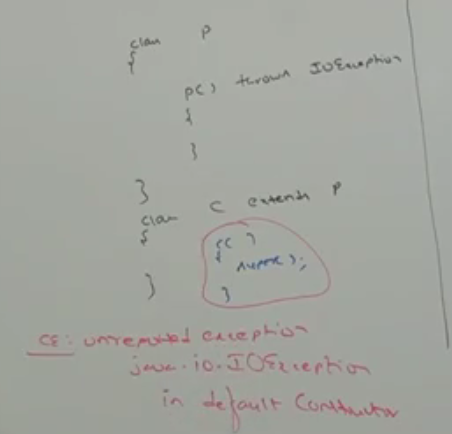 class P
{
P() throws IOException
{
}
}
class C extends P
{
C()
{
super();
}
}
CE: unreported exception
java.io.IOException
in default Constructor